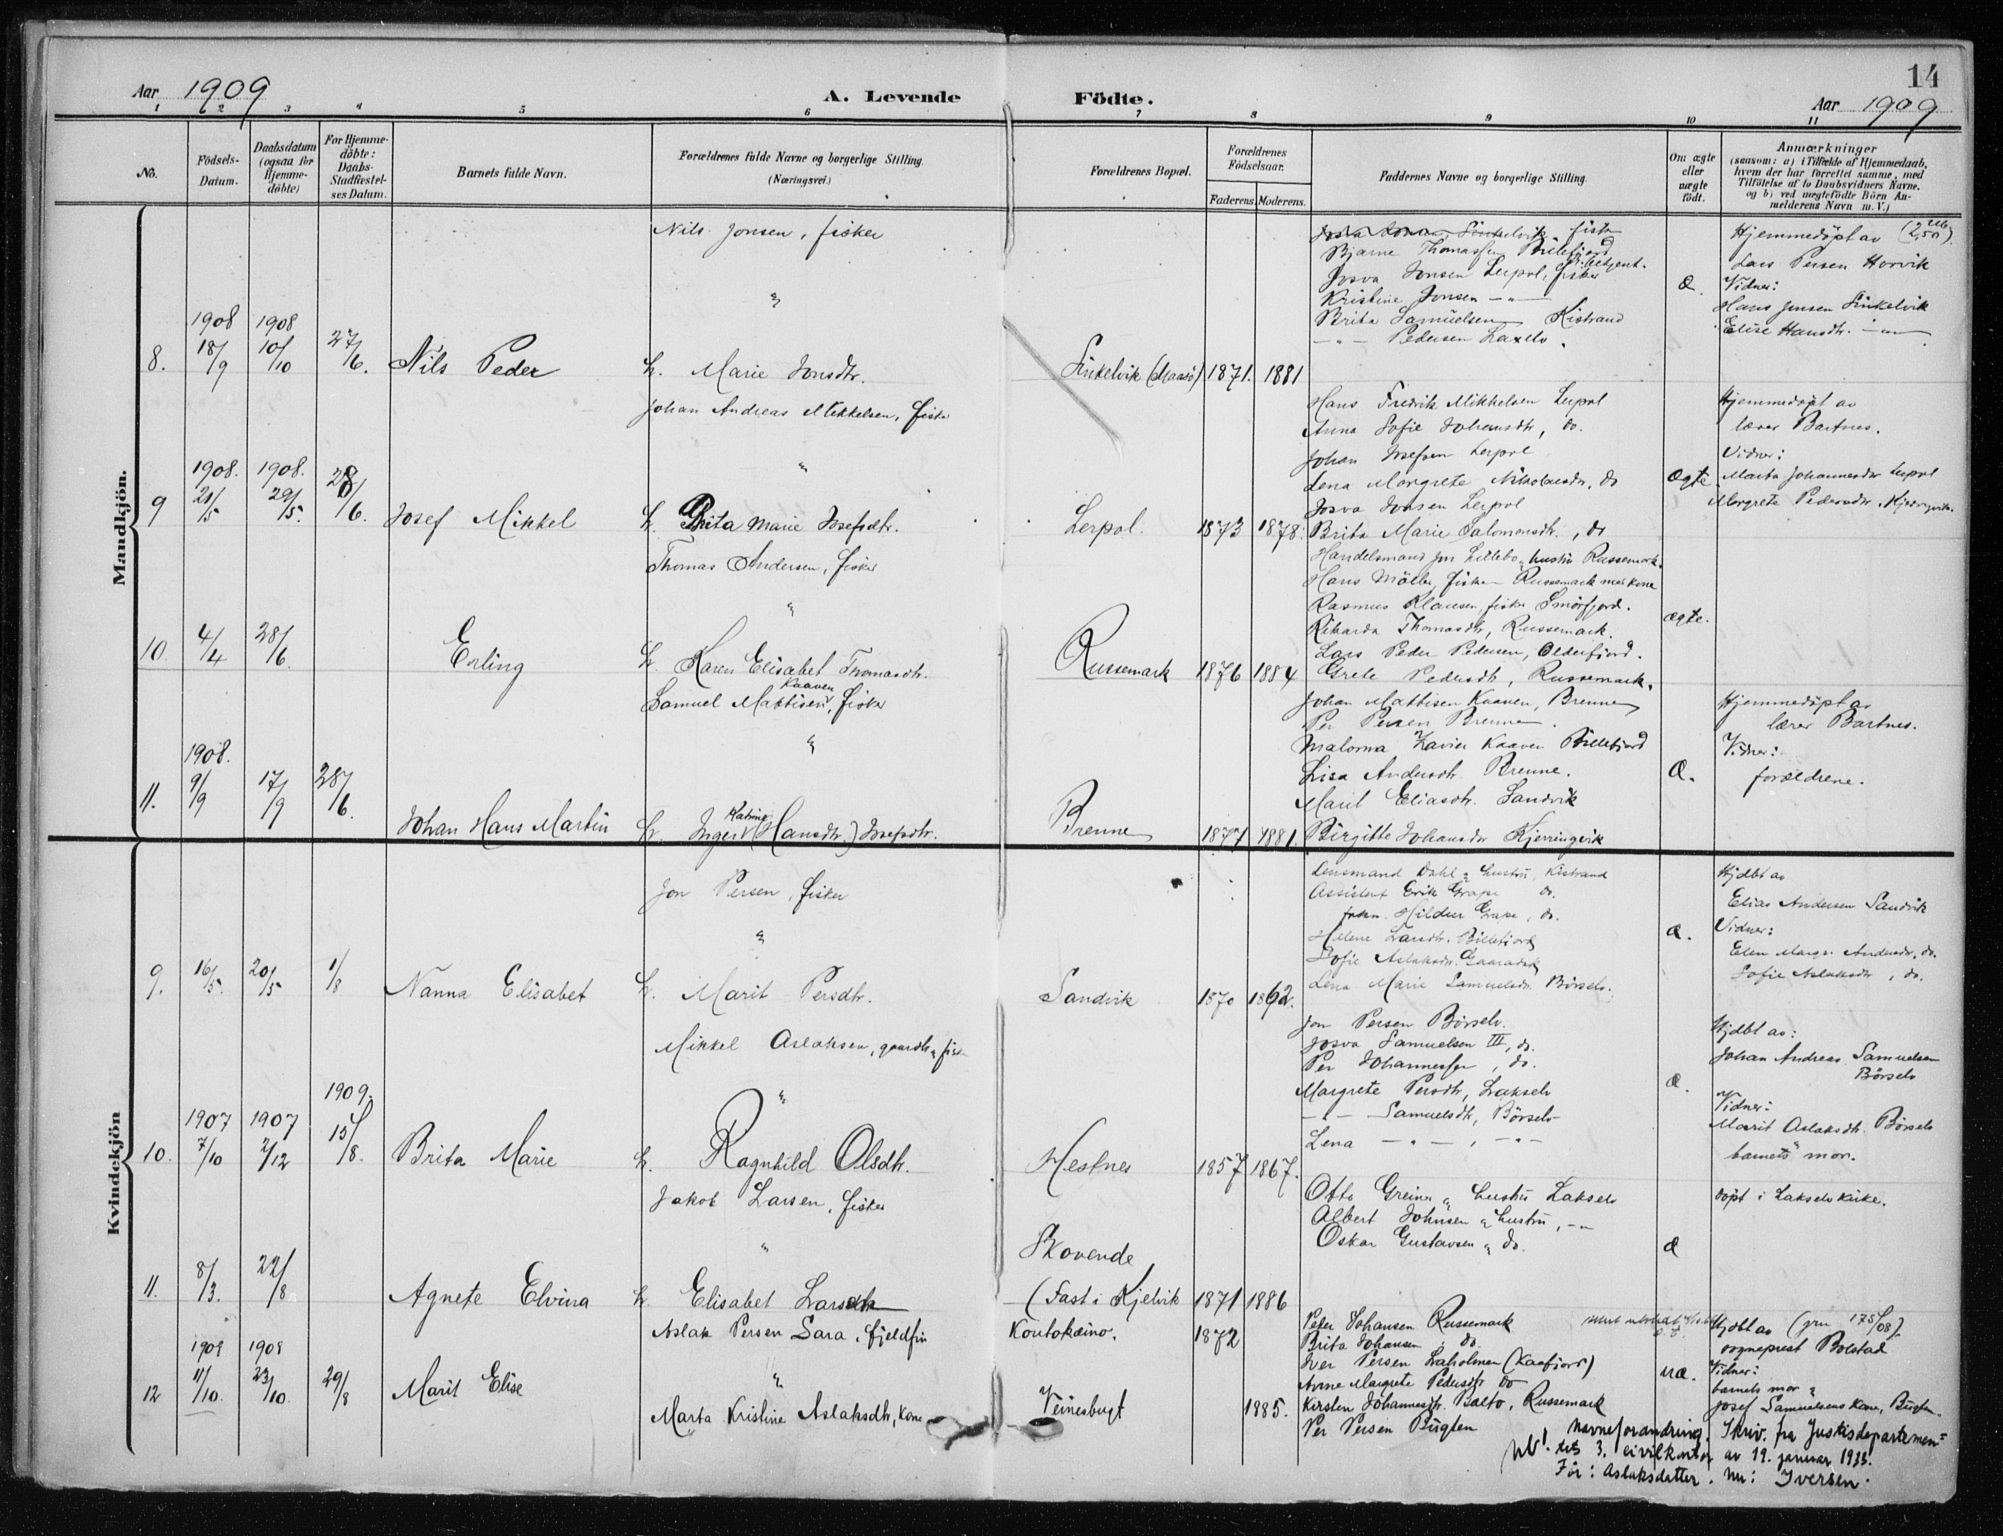 14
Aar 1909
A. Levende Födte.
Aar 1909
1 2 3 4 5 6 7 8 9 10 11
No.
Födsels-Datum.
Daabsdatum (ogsaa for Hjemmedöbte)
For Hjemmedöbte: Daabs-Stadfæstelses Datum.
Barnets fulde Navn.
Forældrenes fulde Navne og borgerlige Stilling. (Næringsvei.)
Forældrenes Bopæl.
Forældrenes Födselsaar.
Faderens. Moderens.
Faddernes Navne og borgerlige Stilling.
Om ægte eller uægte födt.
Anmærkninger
(saasom: a) i Tilfælde af Hjemmedaab, hvem der har forrettet samme, med Tilföielse af to Daabsvidners Navne. og b) ved uægtefödte Börn Anmelderens Navn m. V.)
Mandkjön.
8.
1908 18/9
1908 10/10
27/6.
Nils Peder
Nils Jonsen, fisker
"
h. Marie Jonsdtr.
Finkelvik (Maasö)
1871. 1881
Bjarne Thomassen Billefjord
Josva Jonsen Lerpol, fisker
Kristine Jonsen -"-
Brita Samuelsen Kistrand
-"- Pedersen Laxelv.
Æ.
Hjemmedöpt av
Lars Persen Horvik
Vidner:
Hans Jensen Finkelvik
Elise Hansdtr. -"-
9
1908. 21/5
1908. 29/5.
28/6.
Josef Mikkel
Johan Andreas Mikkelsen, fisker
"
h. Brita Marie Josefsdtr.
Lerpol.
1873 1878.
Hans Fredrik Mikkelsen Lerpol
Anna Sofie Johansdtr, do.
Johan Josefsen Lerpol
Lena Margrete Nikolaisdtr, do
Josva Jonsen Lerpol
Brita Marie Salomonsdtr., do
Ægte
Hjemmedöpt av
lærer Bartnes.
Vidner:
Marta Johannesdtr Lerpol
Margrete Pedersdtr. Kjærringvik
10.
4/4
28/6.
Erling
Thomas Andersen, fisker
"
h. Karen Elisabet Thomasdtr.
Russemark
1876 1884
Handelsmand Lillebo, hustru Russemark.
Hans Möller, fisker Russemark med kone
Rasmus Klausen, fisker Smörfjord.
Rikarda Thomasdtr, Russemark.
Lars Peder Pedersen, Olderfjord.
Grete Pedersdtr, Russemark.
ægte.
11.
1908. 9/9
17/9
28/6.
Johan Hans Martin
Samuel Mattisen Kaaven, fisker
"
h. Inger Katrine (Hansdtr.) Josefsdtr.
Brenne
1877 1881.
Johan Mattisen Kaaven, Brenne
Per Persen Brenne.
Malorna Xavier Kaaven Billefjord
Lisa Andersdtr. Brenne.
Marit Eliasdtr. Sandvik
Birgitte Johansdtr Kjerringvik
Æ.
Hjemmedöpt av
lærer Bartnes.
Vidner:
forældrene.
Kvindekjön
9.
16/5.
20/5
1/8
Nanna Elisabet
Jon Persen, fisker
"
h. Marit Persdtr.
Sandvik
1870 1862.
Lensmand Dahl & hustru, Kistrand
Assistent Erik Grape do.
frøkn. Hildur Grape, do.
Helene Larsdtr. Billefjord
Sofie Aslaksdtr.
Lena Marie Samuelsdtr. Börselv.
Æ.
Hjdbt av
Elias Andersen Sandvik
Vidner:
Ellen Margr. Andersdtr, do.
Sofie Aslaksdtr, do.
10.
1907 7/10
1907 2/12
1909. 15/8.
Brita Marie
Mikkel Aslaksen, gaardbr. & fisker
"
h. Ragnhild Olsdtr.
Hestnes
1857 1867.
Jon Persen Börselv.
Josva Samuelsen III, do.
Per Johannessen, do.
Margrete Persdtr, Lakselv
-"- Samuelsdtr, Börselv
Lena -"-, -"-
Æ.
Hjdbt av:
Johan Andreas Samuelsen
Börselv
Vidner:
Marit Aslaksdtr. Börselv
barnets mor.
11.
8/3.
22/8
Agnete Elvina
Jakob Larsen, fisker
"
h. Elisabet Larsdtr
Skovende
(Fast i Kjelvik
1871 1886
Otto Greiner & hustru Lakselv
Albert Johnsen & hustru, -"-
Oskar Gustavsen & do.
Æ
Döpt i Lakselv kirke.
12
1908 11/10.
1908 23/10.
29/8
Marit Elise
Aslak Persen Sara, fjeldfin
"
Marta Kristine Aslaksdtr, kone
Koutokæino.
Veinesbugt
1872 1885.
Peter Johansen Russemark
Brita Johansen do.
Iver Persen Laholmen (Kaafjord)
Anne Margrete Pedersdtr do
Kirsten Johannesdtr. Balto, Russemark
Per Persen Bugten
uæ.
Hjdbt av
sogneprest Bolstad
Vidner:
barnets mor &
Josef Samuelsens kone, Bugten.
NB! Navneforandring. Skriv. fra Justisdepartemen=
tets 3. civilkontor av 19. januar 1933.
Før: Aslaksdatter. Nu: Iversen.